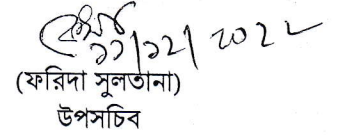 ১১/১২/২০২২
(ফরিদা সুলতানা)
উপসচিব